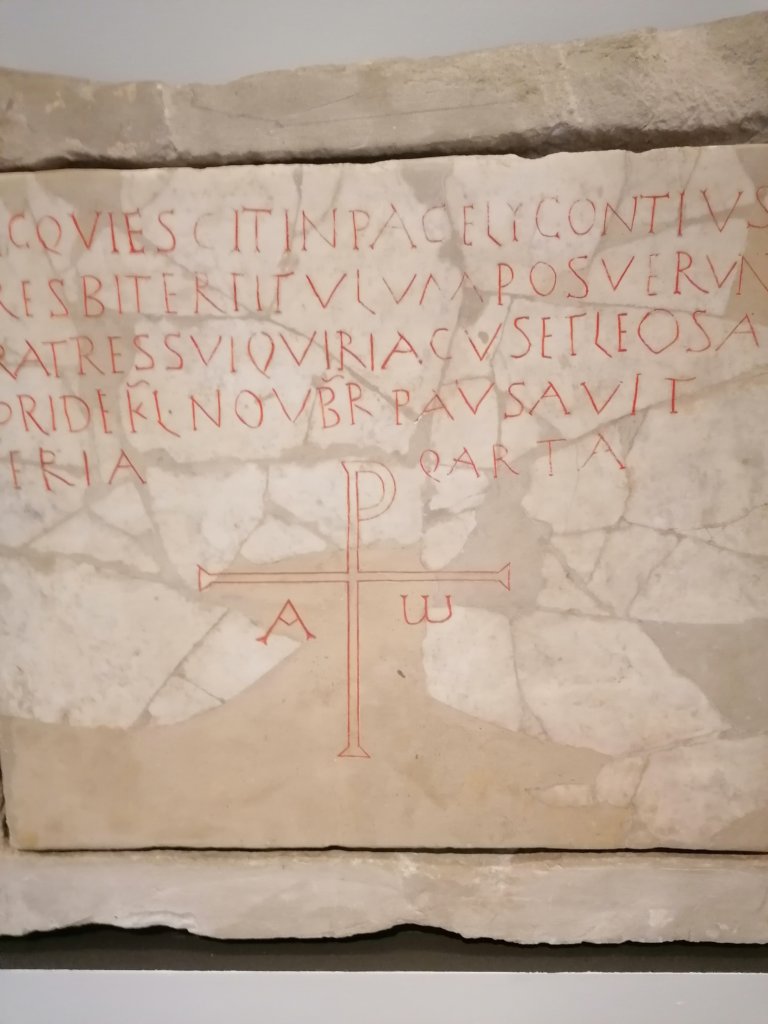 ICQVIESCITINPACELYCONTIVS
RESBITERTITVLVMPOSVERVN
RATRESSVIQVIRIACVSETLEOSA
PRIDEK̃LNOVB̃RPAVSAVIT
ERIA QARTA
P
A ω